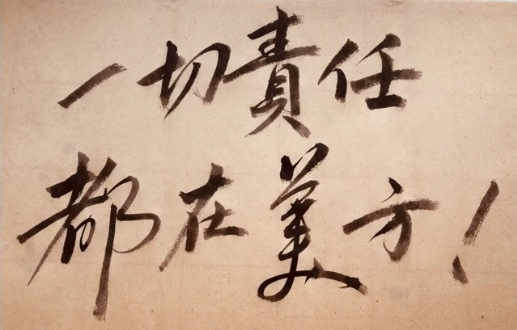 一切責任
都在美方!